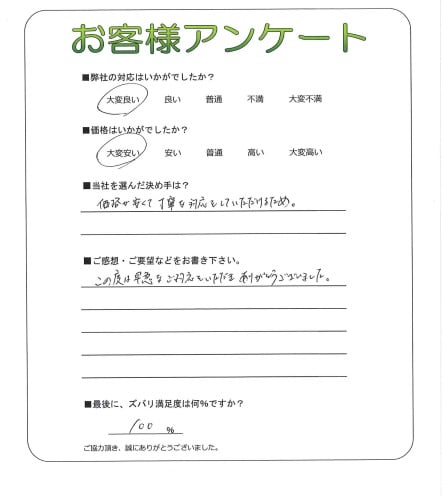 お客様アンケート
■弊社の対応はいかがでしたか？
大変良い 良い 普通 不満 大変不満
■価格はいかがでしたか？
大変安い 安い 普通 高い 大変高い
■当社を選んだ決め手は？
価格が安くて丁寧な対応をしていただけるため。
■ご感想・ご要望などをお書き下さい。
この度は早急なご対応をいただき ありがとうございました。
■最後に、ズバリ満足度は何％ですか？
100 ％
ご協力頂き、誠にありがとうございました。